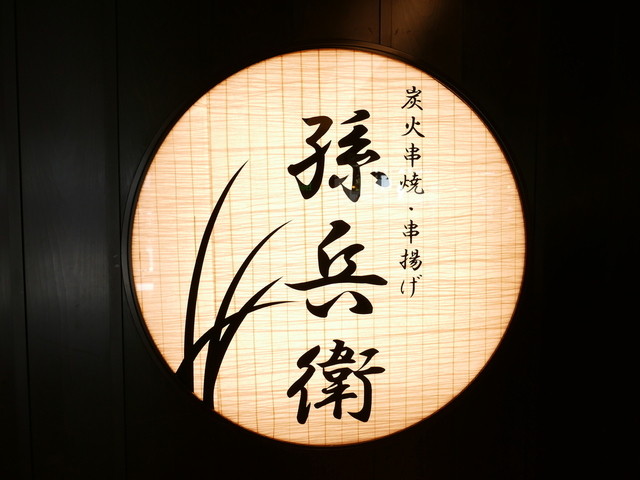 炭火串焼・串揚げ
孫兵衛